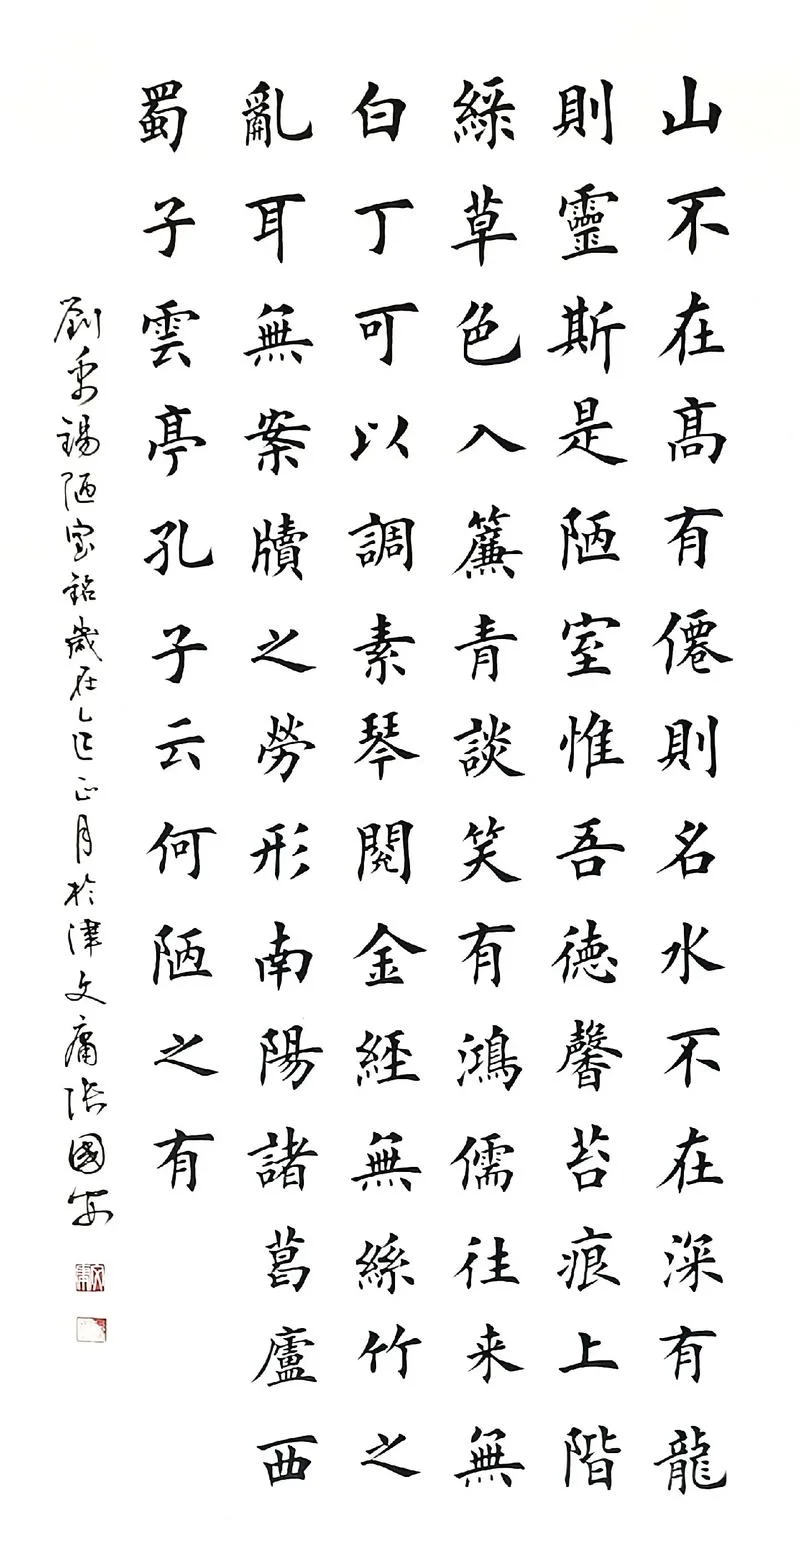 山不在髙有僊則名水不在深有龍
則靈斯是陋室惟吾德馨苔痕上階
綠草色入簾青談笑有鴻儒往来無
白丁可以調素琴閱金經無絲竹之
亂耳無案牘之勞形南陽諸葛廬西
蜀子雲亭孔子云何陋之有
劉禹錫陋室銘歲在乙巳正月於津文庸張國